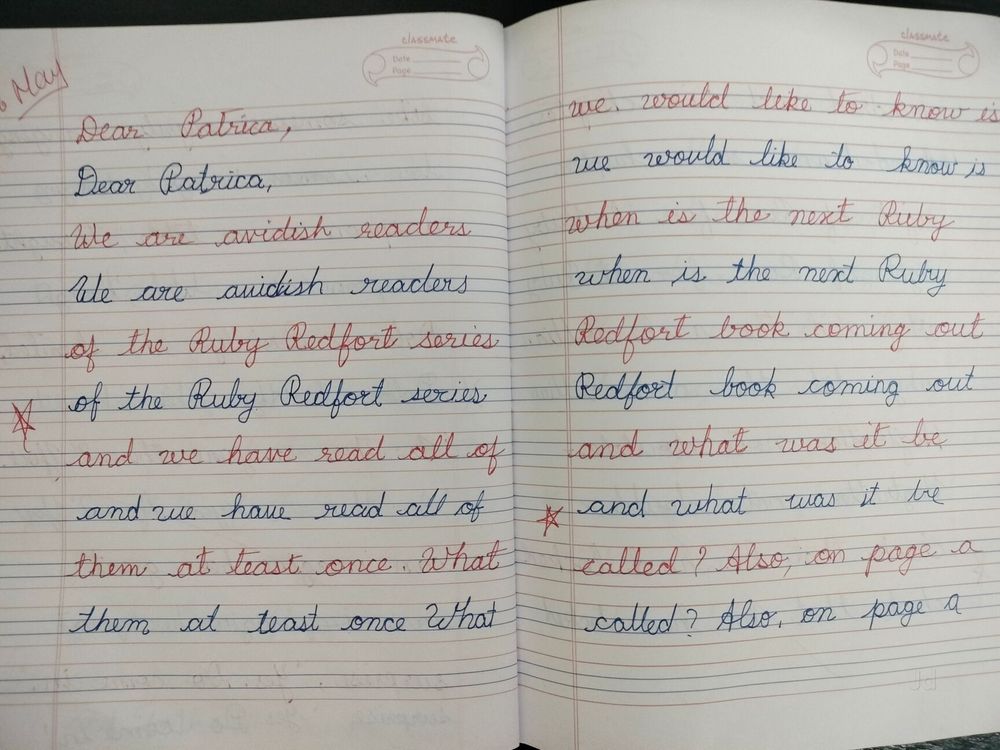 May
classmate
Date
Page
Dear Patrica,
Dear Patrica,
We are avidish readers
We are avidish readers
of the Ruby Redfort series
of the Ruby Redfort series
and we have read all of
and we have read all of
them at teast once. What
them at teast once What
classmate
Date
Page
we would like to know is
we would like to know is
when is the next Ruby
when is the next Ruby
Redfort book coming out
Redfort book coming out
and what was it be
and what was it be
called? Also, on page a
called? Also, on page a